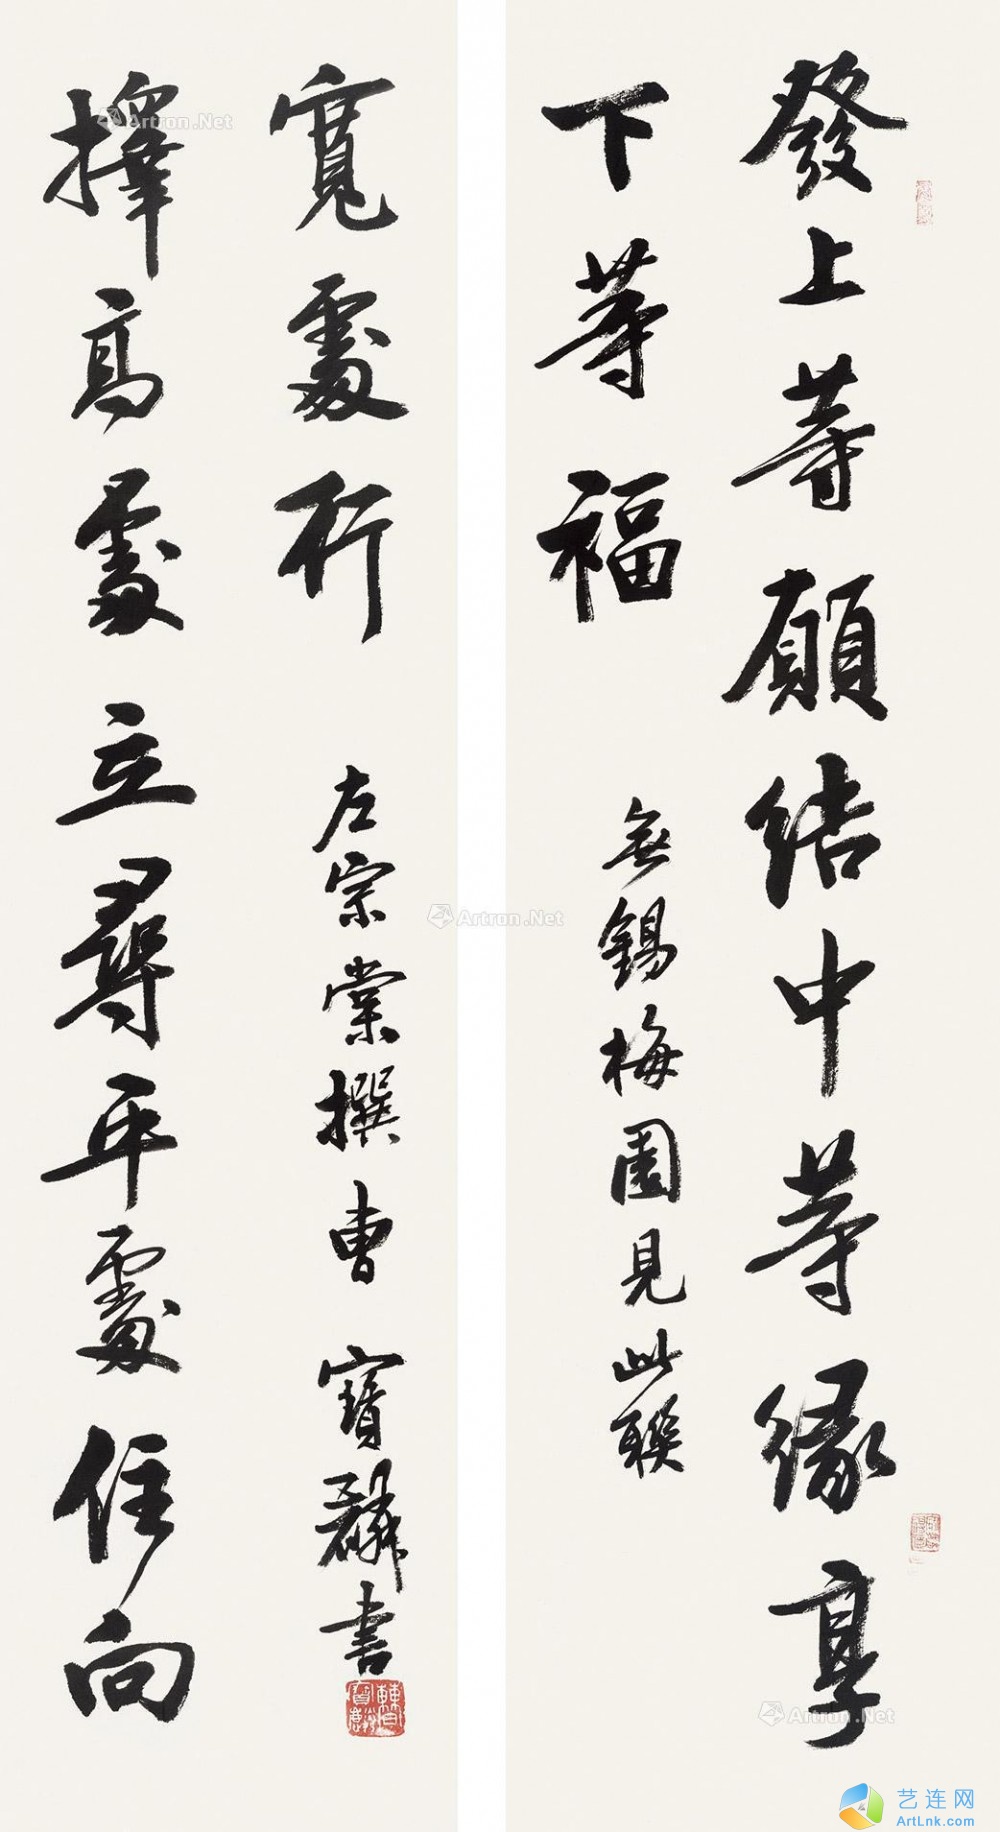 發上等願結中等緣享
下等福
無錫梅園見此聯
擇高處立尋平處住向
寬處行
左宗棠撰曹寶麟書
Artron.Net
Artron.Net
Artron.Net
艺连网
ArtLnk.com